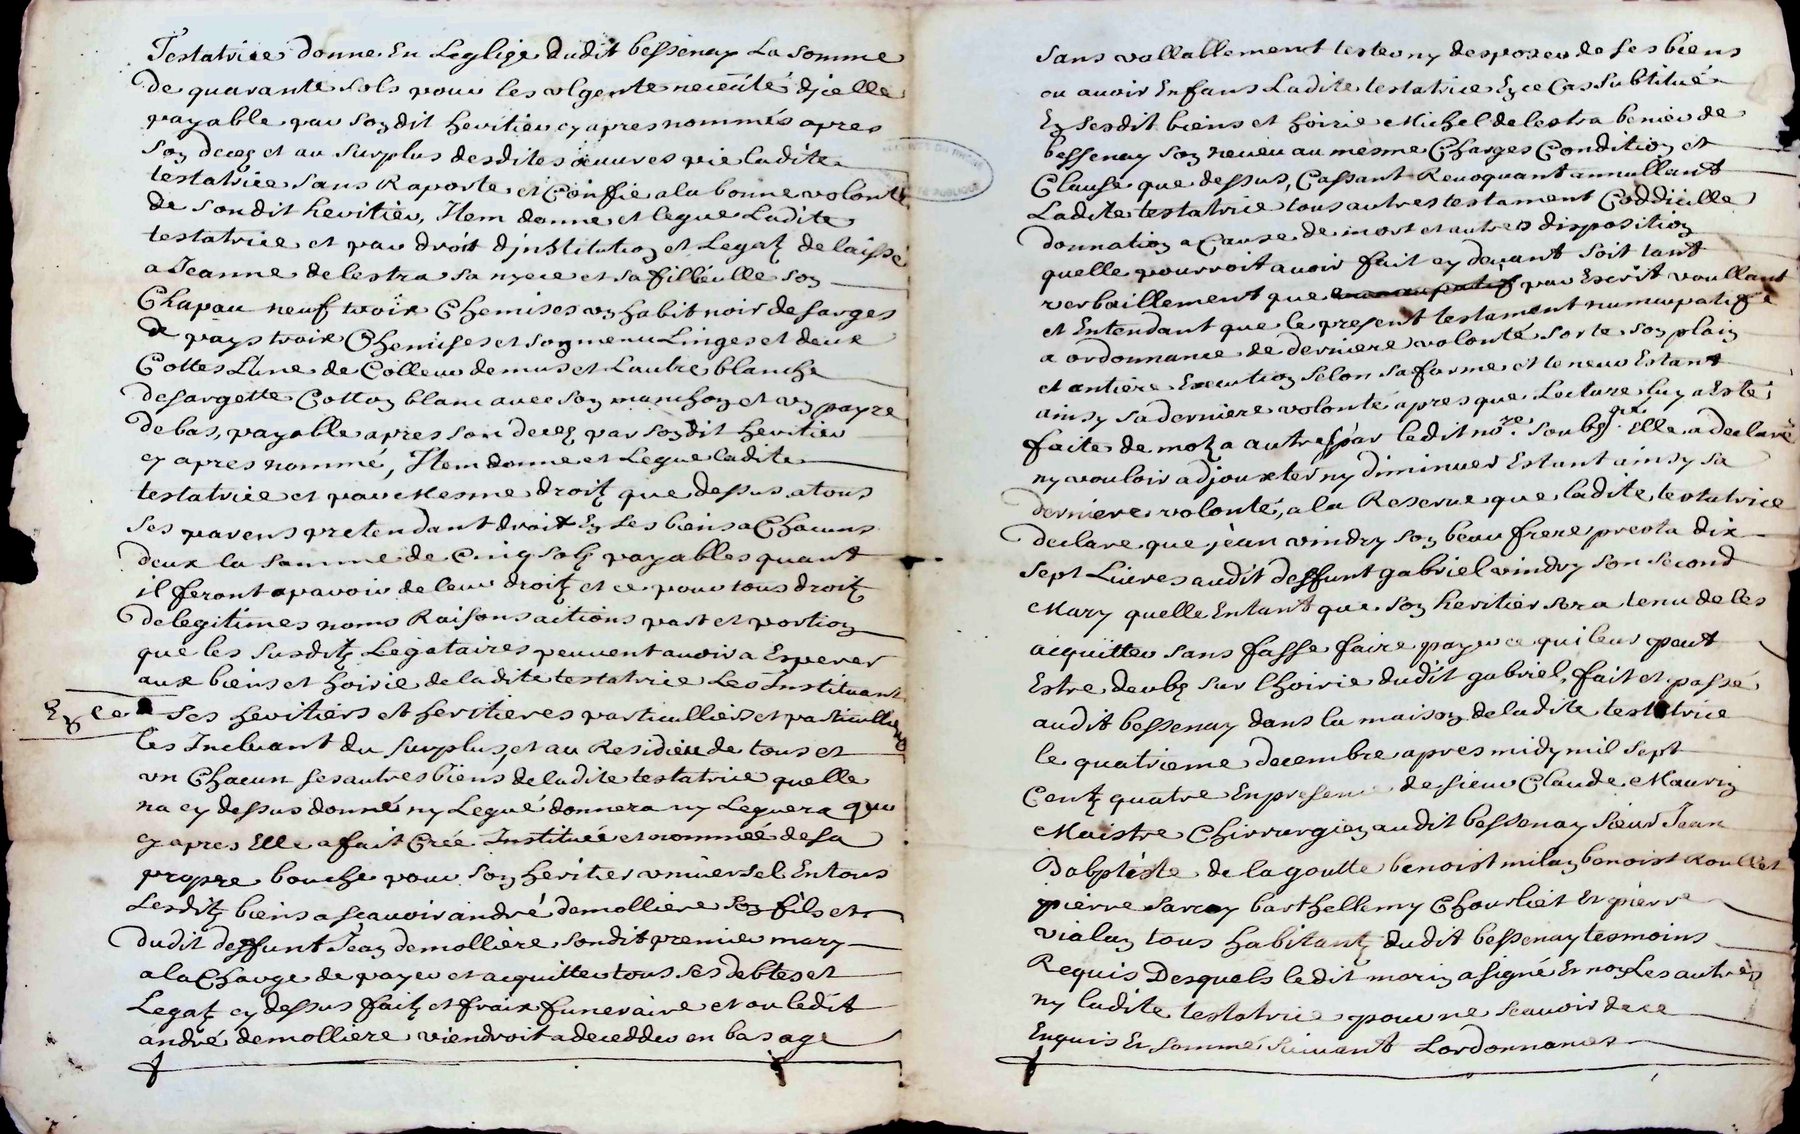 Testatrice donne En Leglize dudit bessenay La somme
de quarante sols pour les vrgente necessité djcelle
payable par son dit heritier cy apres nommés apres
son deces et au surplus desdites œuures pie ladite
testatrice sans Raporte et Confie a la bonne volonté
de son dit heritier, Item donne et legue Ladite
testatrice et par droit djnstitution et Legatz de laissé
a Jeanne delestra sa nyece et sa filleulle son
Chapau neuf troix Chemises vn habit noir de sarges
de pays troix Chemises et son menu Linges et deux
Cottes L'une de Colleur de mus et Lautre blanche
de sargette Cotton blanc auec son manchon et vn payre
de bas, payable apres son decez par son dit heritier
cy apres nommé, Item donne et Legue ladite
testatrice et par Mesme droitz que dessus a tous
ses parens pretendant droit En ses biens a Chacuns
deux la somme de Cinq solz payables quant
il feront aparoir de leur droitz et ce pour tous droitz
de legitimes noms Raisons actions part et portion
que les susditz Legataires peuuent auoir a Esperer
aux biens et hoirie de ladite testatrice Les Instituant
En ce ses heritiers et heritieres particulliers et particullieres
les Incluant du surplus, et au Residieu de tous et
vn Chacun ses autres biens de ladite testatrice quelle
na cy dessus donné ny Legué donnera ny Leguera
cy apres Elle a fait Créé Instituée et nommée de sa
propre bouche pour son heritier vniuersel En tous
sesditz biens a scauoir andré demolliere son fils et
dudit deffunt Jean demolliere son dit premier mary
a la Charge de payer et acquitter tous ses debtes et
Legatz cy dessus faitz et fraix funeraire et ou ledit
andré demolliere viendroit a decedder en bas age
sans vallablement tester ny desposer de ses biens
ou auoir Enfans Ladite testatrice En ce Cas subtitué
En sesdit biens et hoirie Michel delestra benier de
bessenay son neueu au mesme Charges Condition et
Clause que dessus, Cassant Reuoquant annullant
Ladite testatrice tous autres testament Coddicille
donnation a Cause de mort et autres disposition
quelle pourroit auoir fait cy deuant soit tant
verbaillement que par Escrit voullant
et Entendant que le present testament nuncupatif
a ordonnance de derniere volonté sorte son plain
et antiere Execution selon sa forme et teneur Estant
ainsy sa derniere volonté apres que Lecture luy a Esté
faite de motz a autres par ledit no.re soubg.né Elle a declaré
ny vouloir adjouxter ny diminuer Estant ainsy sa
derniere volonté, a la Reserue que ladite testatrice
declare que jean vindry son beau frere presta dix
sept Liures audit deffunt gabriel vindry son second
Mary quelle Entant que son heritier sera tenu de les
acquitter sans fasse faire payer ce qui leur peut
Estre deubz sur lhoirie dudit gabriel, fait et passé
audit bessenay dans la maison de ladite testatrice
le quatrieme decembre apres midy mil sept
Centz quatre En presence de sieur Claude Maurin
Maistre Chirurgien audit bessenay sieur Jean
Babptiste de lagoutte benoist milan benoist Roullet
pierre sarcey barthellemy Chourliet Et pierre
vialan tous habitantz dudit bessenay tesmoins
Requis Desquels ledit morin a signé Et non Les autres
ny ladite testatrice pour ne scauoir de ce
Enquis Et sommé suiuant Lordonnances